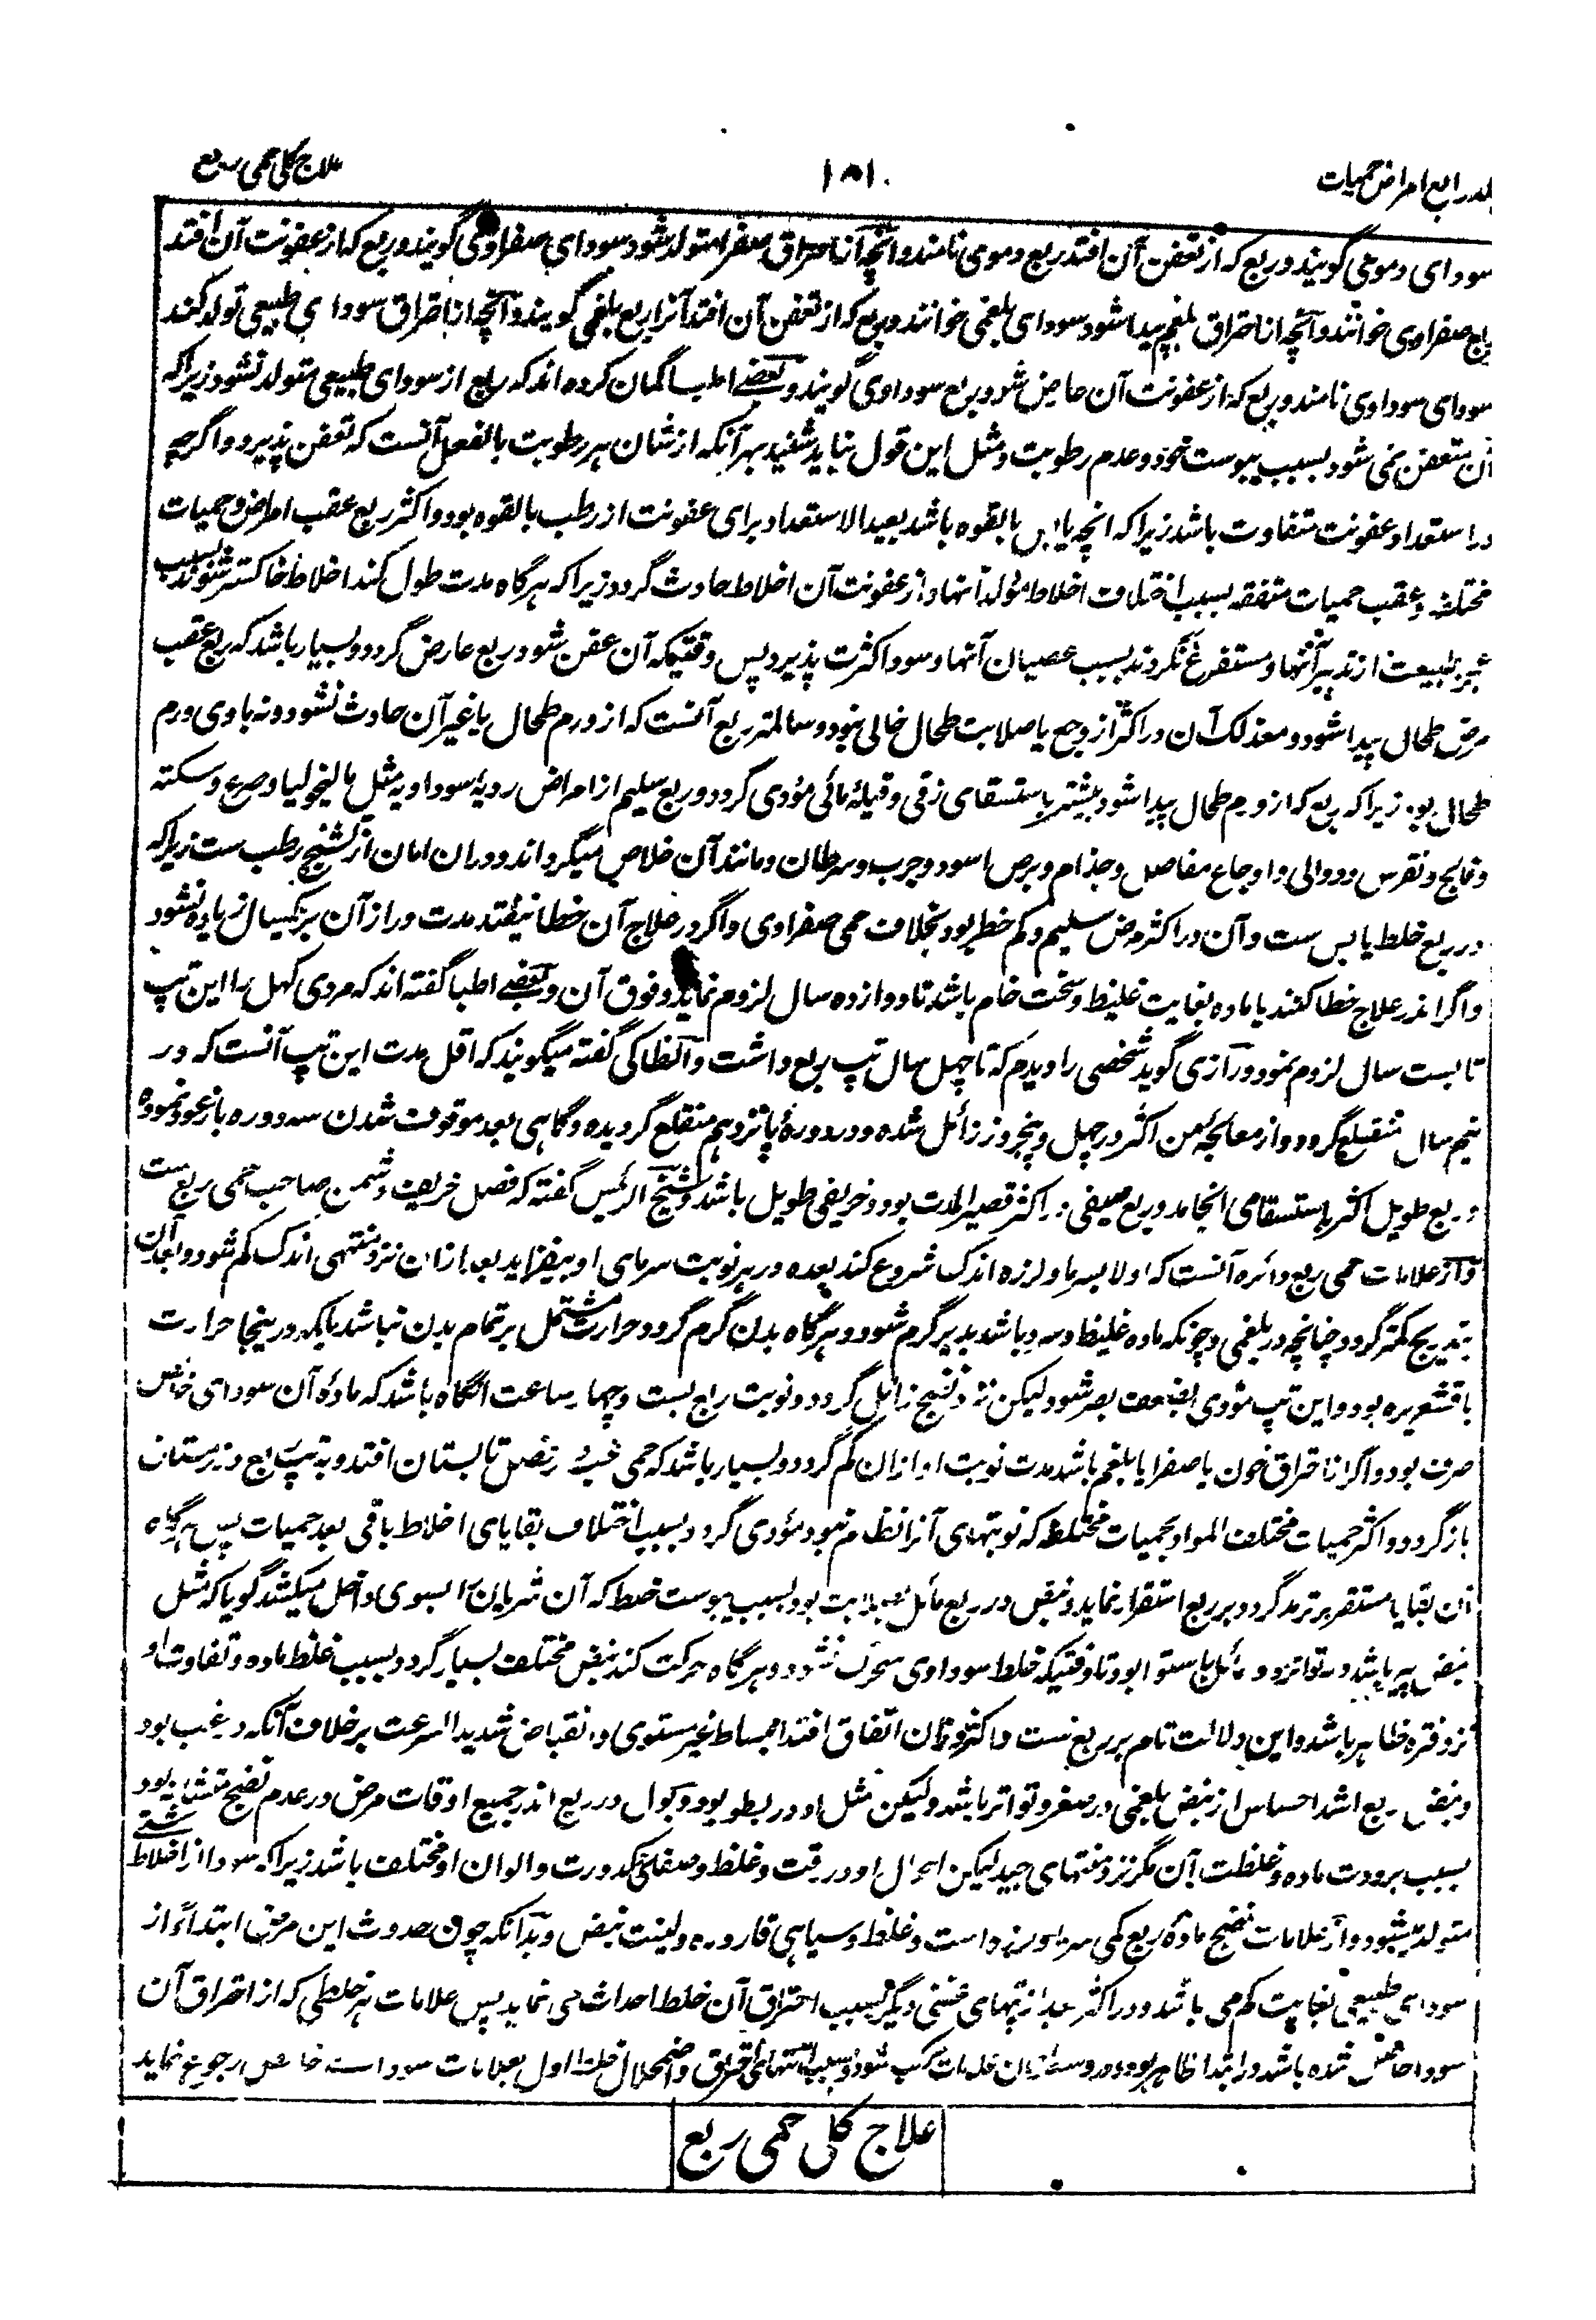 جلد رابع امراض حمیات
۱۵۱
علاج کلی حمی ربع
سودای دموی گویند و ربع که از تعفن آن افتد ربع دموی نامند و آنچه از احتراق صفرا متولد شود سودای صفراوی گویند و ربع که از عفونت آن افتد
ربع صفراوی خوانند و آنچه از احتراق بلغم پیدا شود سودای بلغمی خوانند و ربع که از تعفن آن افتد آنرا ربع بلغمی گویند و آنچه از احتراق سودای طبیعی تولد کند
سودای سوداوی نامند و ربع که از عفونت آن حاض شود ربع سوداوی گویند و بعضے اطبا گمان کرده اند که ربع از سودای طبیعی متولد نشود زیرا که
آن متعفن نمی شود بسبب یبوست خود و عدم رطوبت و مثل این قول نباید شنید بهر آنکه از شان هر رطوبت بالفعل آنست که تعفن پذیرد و اگرچه
در استعداد عفونت متفاوت باشد زیرا که انچه یابس بالقوه باشد بعید الاستعداد برای عفونت از رطب بالقوه بود و اکثر ربع عقب امراض و حمیات
مختلفه و عقب حمیات متفقه بسبب اختلاف اخلاط مولد آنها و از عفونت آن اخلاط حادث گردد زیرا که هرگاه مدت طول کند اخلاط خاکستر شوند بسبب
عجز طبیعت از تدبیر آنها و مستفرغ نگردند بسبب عصیان آنها و سودا کثرت پذیرد پس وقتیکه آن عفن شود ربع عارض گردد و بسیار باشد که ربع عقب
مرض طحال پیدا شود و معذلک آن در اکثر از وجع یا صلابت طحال خالی نبود و سالمتر ربع آنست که از ورم طحال یا غیر آن حادث نشود و نه با وی ورم
طحال بود زیرا که ربع که از ورم طحال پیدا شود بیشتر باستسقای زقی و قیلهٔ مائی مؤدی گردد و ربع سلیم از امراض ردیهٔ سوداویه مثل مالیخولیا و صرع و سکته
و فالج و نقرس و دوالی و اوجاع مفاصل و جذام و برص اسود و جرب و سرطان و مانند آن خلاص میگرداند و دران امان از تشنج رطب ست زیرا که
در ربع خلط یابس ست و آن در اکثر مرض سلیم و کم خطر بود بخلاف حمی صفراوی و اگر در علاج آن خطا نیفتد مدت دور از آن بر یکسال زیاده نشود
و اگر اندر علاج خطا کنند یا ماده بغایت غلیظ و سخت خام باشد تا دوازده سال لزوم نماید و فوق آن و بعضے اطبا گفته اند که مردی کهل را این تپ
تا بست سال لزوم نمود و رازی گوید شخصی را دیدم که تا چهل سال تپ ربع داشت و انطاکی گفته میگویند که اقل مدت این تپ آنست که در
نیم سال منقلع گردد و از معالجهٔ من اکثر در چهل و پنج روز زائل شده و در دورهٔ پانزدهم منقلع گردیده و گاهی بعد موقوف شدن سه دوره باز عود نموده
و ربع طویل اکثر باستسقا می انجامد و ربع صیفی در اکثر قصیر المدت بود و خریفی طویل باشد و شیخ الرئیس گفته که فصل خریف دشمن صاحب حمی ربع ست
و از علامات حمی ربع دائره آنست که اولا بسرما و لرزه اندک شروع کند بعده در هر نوبت سرمای او بیفزاید بعد ازان نزد منتهی اندک کم شود و بعد آن
بتدریج کمتر گردد چنانچه در بلغمی و چونکه ماده غلیظ و سرد باشد بدیر گرم شود و هرگاه بدن گرم گردد حرارت مشتمل بر تمام بدن نباشد بلکه در ینجا حرارت
با قشعریره بود و این تپ مؤدی بضعف بصر شود لیکن نزد نضج زائل گردد و نوبت ربع بست و چهار ساعت انگاه باشد که مادهٔ آن سودای خاص
صرف بود و اگر از احتراق خون یا صفرا یا بلغم باشد مدت نوبت او ازان کم گردد و بسیار باشد که حمی غب در فصل تابستان افتد و به تپ ربع در زمستان
باز گردد و اکثر حمیات مختلف المواد بحمیات مختلط که نوبتهای آنرا نظام نبود مؤدی گردد بسبب اختلاف بقایای اخلاط باقی بعد حمیات پس هرگاه
آن بقایا مستقر بر ترمد گردد بر ربع استقرار نماید و نبض در ربع مائل بصلابت بود بسبب یبوست خلط که آن شریان را بسوی داخل میکشد گویا که مثل
نبض پیر باشد و نه تواتر و مائل باستوا بود تا وقتیکه خلط سوداوی متحرک نشود و هرگاه حرکت کند نبض مختلف بسیار گردد بسبب غلظ ماده و تفاوت او
نزد فتره ظاهر باشد و این دلالت تام بر ربع ست و اکثر دران اتفاق افتد انبساط غیر مستوی و انقباض شدید السرعت بر خلاف آنکه در غب بود
و نبض ربع اشد احساس از نبض بلغمی در صغر و تواتر باشد و لیکن مثل او در بطو بود و بول در ربع اندر جمیع اوقات مرض در عدم نضج متشابه بود
بسبب برودت ماده و غلظت آن مگر نزد منتهای جید لیکن احوال او در رقت و غلظ و صفا و کدورت و الوان او مختلف باشد زیرا که سودا از اخلاط شتی
متولد میشود و از علامات نضج مادهٔ ربع کمی سرما و لرزه است و غلظ و سیاهی قاروره و لینت نبض و بدانکه چون حدوث این مرض ابتداءً از
سودای طبیعی بغایت کم می باشد و در اکثر بعد از تپهای عفنی دیگر بسبب احتراق آن خلط احداث می نماید پس علامات هر خلطی که از احتراق آن
سودا حاصل شده باشد در ابتدا ظاهر بود و در وسط ازان علامات مرکب شود و بسبب انتهای احتراق و اضمحلال خلط اول بعلامات سودا خاص رجوع نماید
علاج کلی حمی ربع